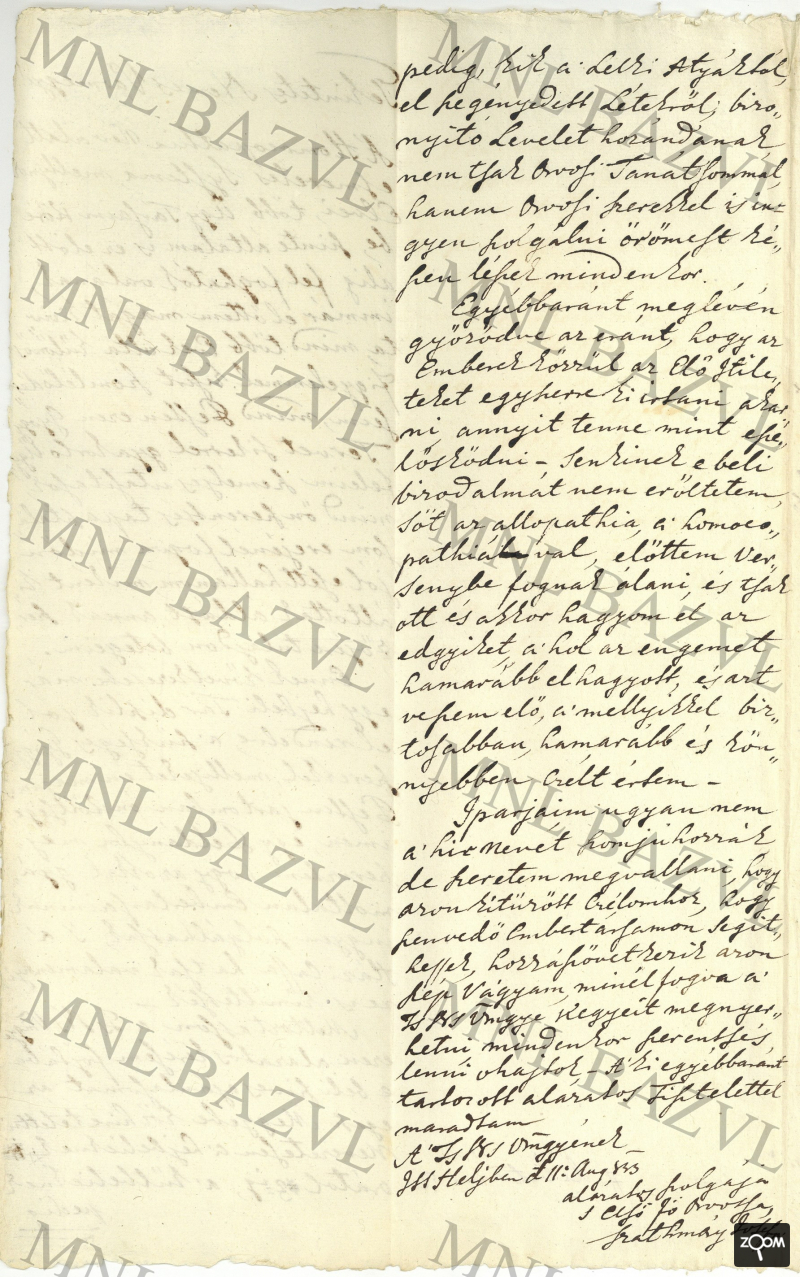 pedig, kik a' Lelki Atyáktól,
el szegényedett Létekről, bizo„
nyitó Levelet hozándanak,
nem tsak Orvosi Tanátsommal,
hanem Orvosi szerekkel is in=
gyen szolgálni örömest ké„
szen lészek mindenkor.
Egyebbaránt meglévén
győződve az eránt, hogy az
Emberek közzül az Elő Itile„
teket egyszerre ki irtani akar„
ni, annyit tenne mint eszé„
lősködni – senkinek e beli
bizodalmát nem erőltetem,
sőt az allopathia, a' homoeo„
pathiával, előttem Ver„
senybe fognak álani, és tsak
ott és akkor hagyom el az
edgyiket, a' hol az engemet
hamarább el hagyott, és azt
veszem elő, a' mellyikkel biz„
tosabban, hamarább és kön„
nyebben Czélt érhem –
Iparjaim ugyan nem
a' hír nevet szomjúhozzák
de szeretem megvallani, hogy
azon kitűzött Czélomhoz, hogy
szenvedő Embertársamon segit„
hessek, hozzá szövetkezik azon
szép Vágyam, minél fogva a'
Ts Ns Vmgye Kegyeit megnyer„
hetni mindenkor szerentsés
lenni ohajtok – A' ki egyébbaránt
tartozott alázatos Tisztelettel
maradtam
A' Ts Ns Vmgyének
Itt Helyben d 11: Aug 833
alázatos szolgája
s Első fő Orvossa,
Szathmáry
MNL BAZVL
MNL BAZVL
MNL BAZVL
MNL BAZVL
MNL BAZVL
MNL BAZVL
MNL BAZVL
MNL BAZVL
MNL BAZVL
MNL BAZVL
MNL BAZVL
MNL BAZVL
ZOOM